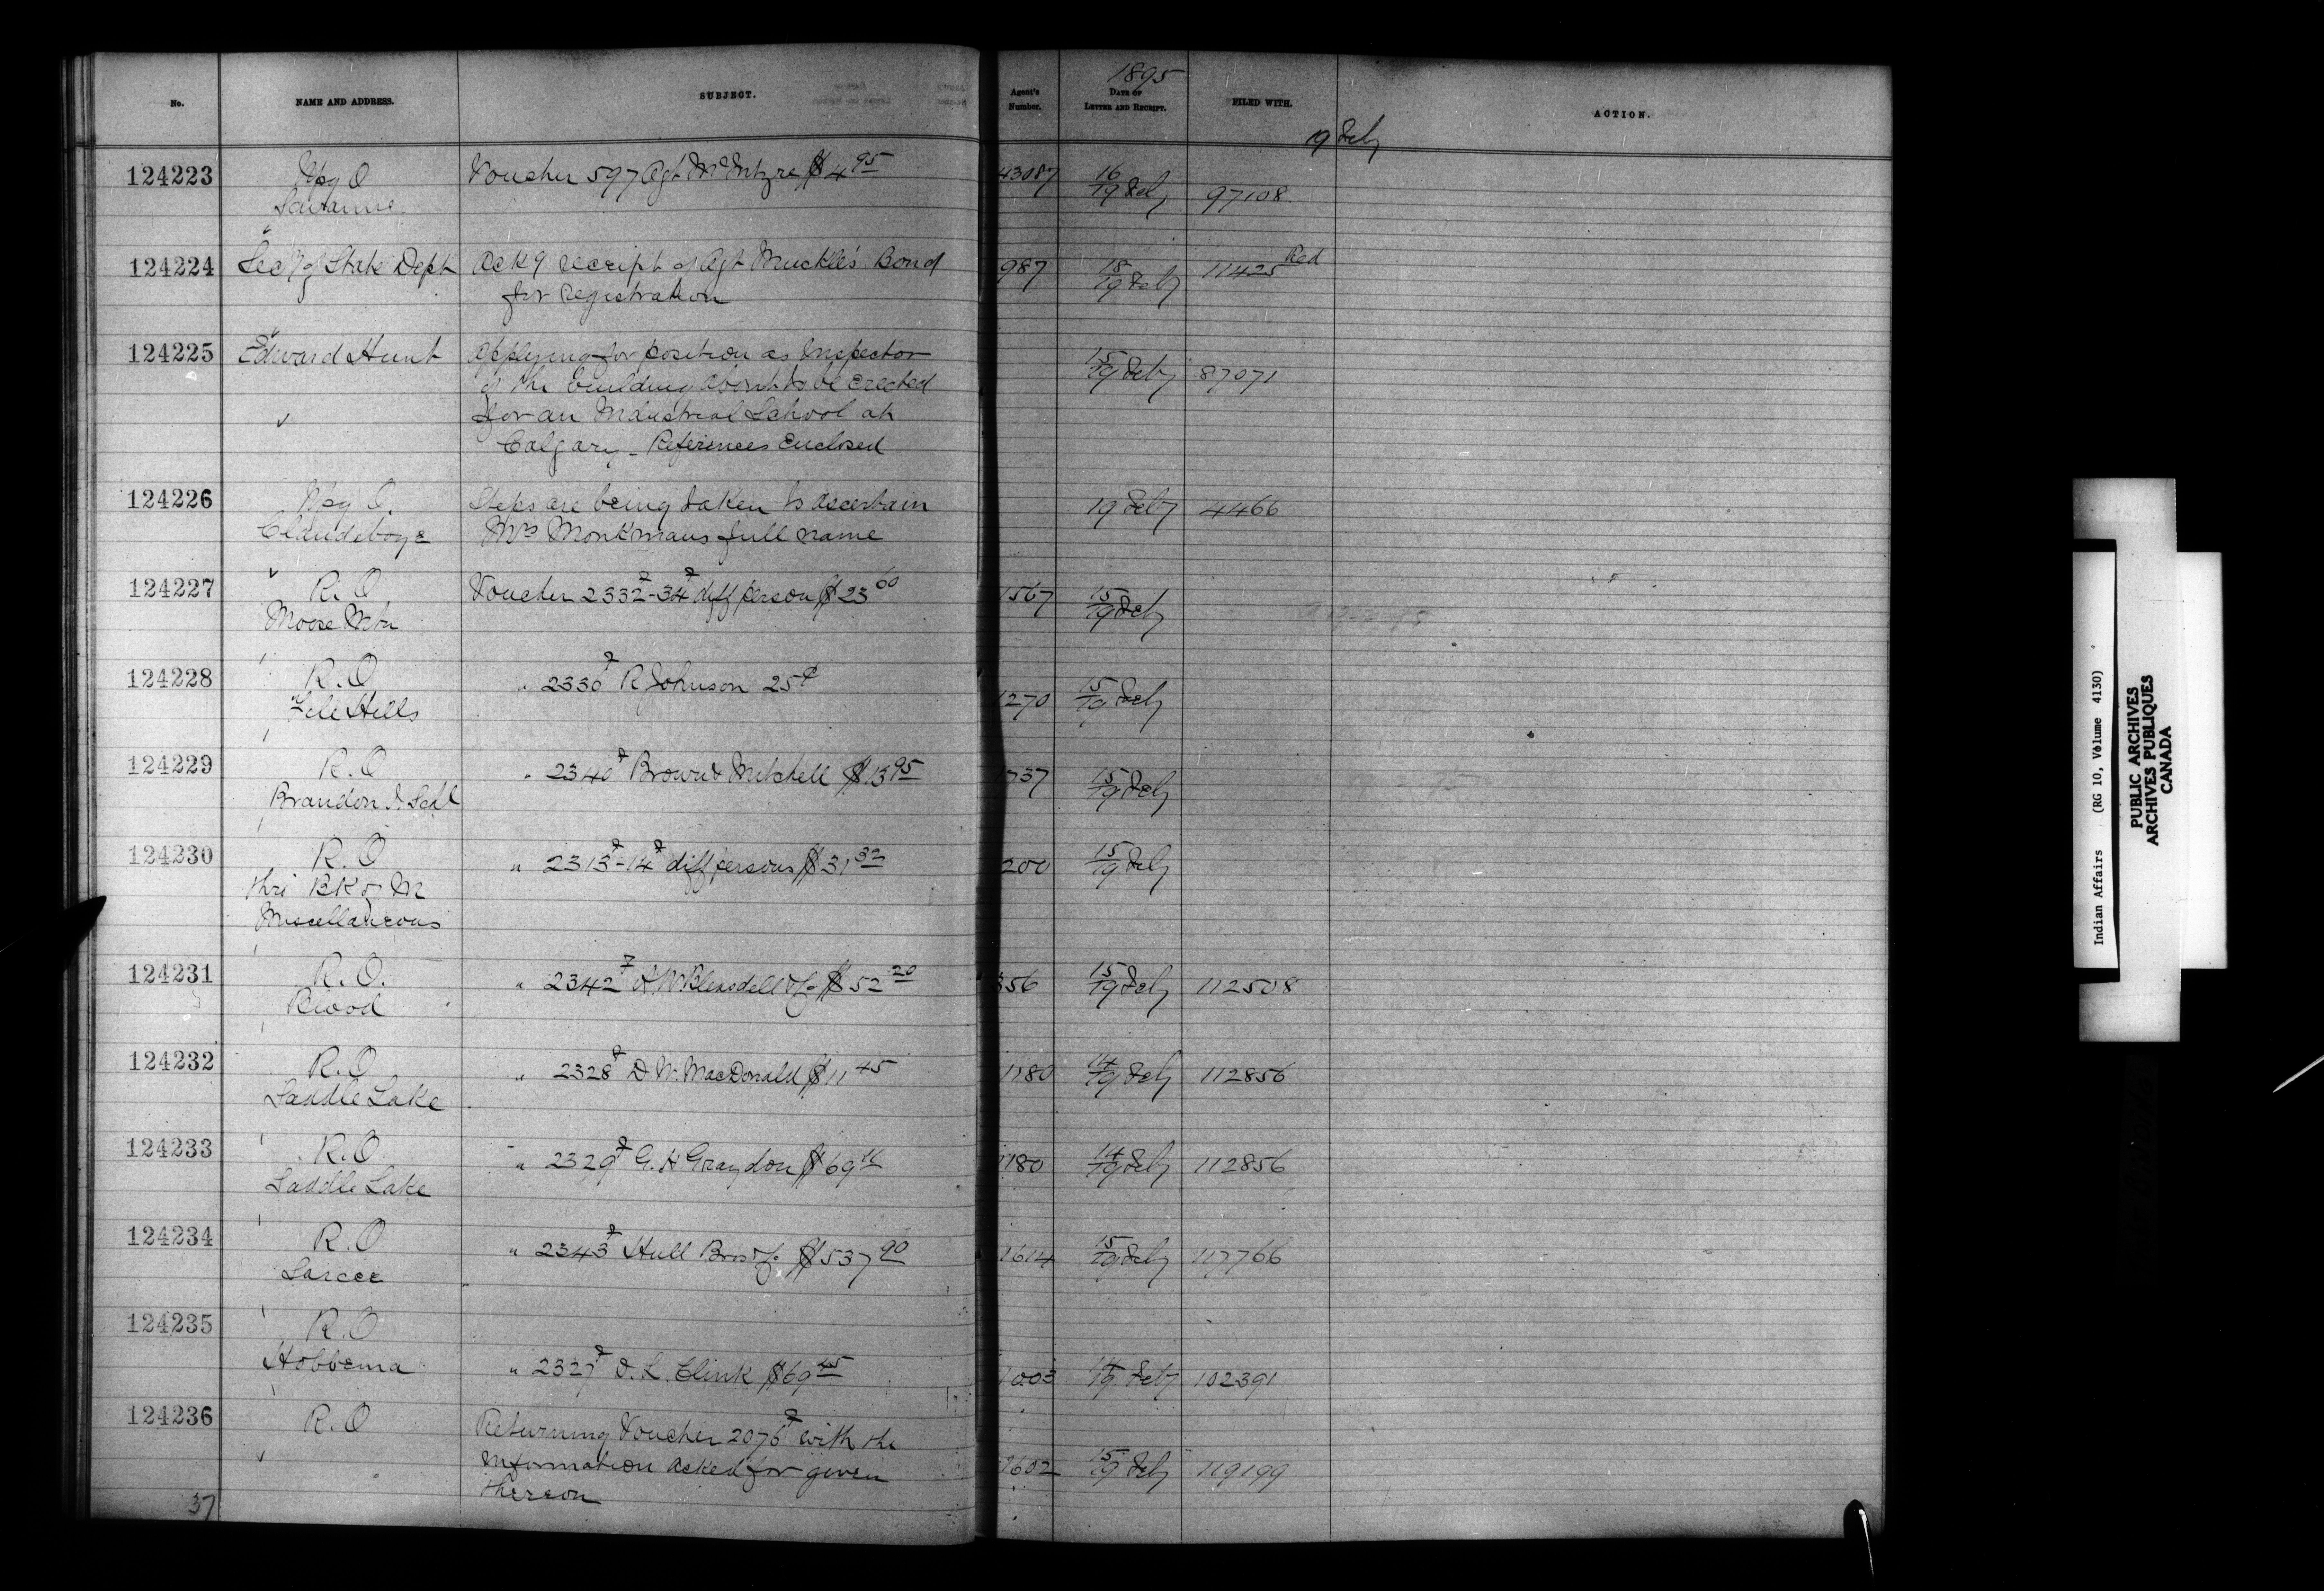 No.
NAME AND ADDRESS.
SUBJECT.
Agent's Number.
1895
DATE OF LETTER AND RECEIPT.
FILED WITH.
ACTION.
19 Feby
124223 Wpg O Voucher 597 Agt McIntyre $4 95 43087 16/19 Feby 97108
Savanne
124224 Secy of State Dept Ackg receipt of Agt Muckle's Bond 987 18/19 Feby 11425 Red
for Registration
124225 Edward Hunt Applying for position as Inspector 15/19 Feby 87071
of the building about to be erected
for an Industrial School at
Calgary - References Enclosed
124226 Wpg O. Steps are being taken to ascertain 19 Feby 4466
Clandeboye Mrs Monkmans full name
124227 R.O. Voucher 2332-34 diff person $23 60 1567 15/19 Feby
Moose Mtn
124228 R.O " 2330 R Johnson 25c 1270 15/19 Feby
File Hills
124229 R.O " 2340 Brown & Mitchell $13 95 1737 15/19 Feby
Brandon I Schl
124230 R.O " 2313-14 diff persons $31 32 200 15/19 Feby
thri BK of M
Miscellaneous
124231 R.O. " 2342 Bleasdell & Co $52 20 356 15/19 Feby 112508
Blood
124232 R.O " 2328 D W. MacDonald $11 45 1180 14/19 Feby 112856
Saddle Lake
124233 R.O. " 2329 G. H Graydon $69 1180 14/19 Feby 112856
Saddle Lake
124234 R.O " 2343 Hull Bros & Co $537 90 1614 15/19 Feby 117766
Sarcee
124235 R.O
Hobbema " 2327 D. L. Clink $69 45 1003 14/19 Feby 102391
124236 R.O Returning Voucher 2076 with the
information asked for given 1602 15/19 Feby 119199
thereon
37
Indian Affairs (RG 10, Volume 4130)
PUBLIC ARCHIVES
ARCHIVES PUBLIQUES
CANADA